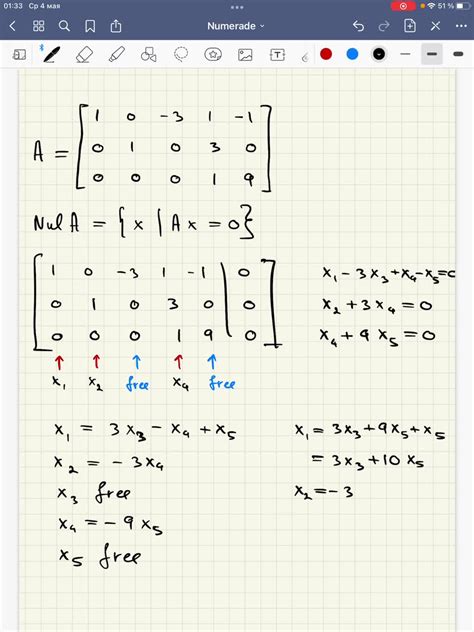 01:33 Ср 4 мая
51 %
Numerade
A = [ 1 0 -3 1 -1
0 1 0 3 0
0 0 0 1 9 ]
Nul A = { x | A x = 0 }
[ 1 0 -3 1 -1 | 0
0 1 0 3 0 | 0
0 0 0 1 9 | 0 ]
↑ ↑ ↑ ↑ ↑
x₁ x₂ free x₄ free
x₁ - 3x₃ + x₄ - x₅ = 0
x₂ + 3x₄ = 0
x₄ + 9x₅ = 0
x₁ = 3x₃ - x₄ + x₅
x₂ = - 3x₄
x₃ free
x₄ = - 9x₅
x₅ free
x₁ = 3x₃ + 9x₅ + x₅
= 3x₃ + 10x₅
x₂ = - 3